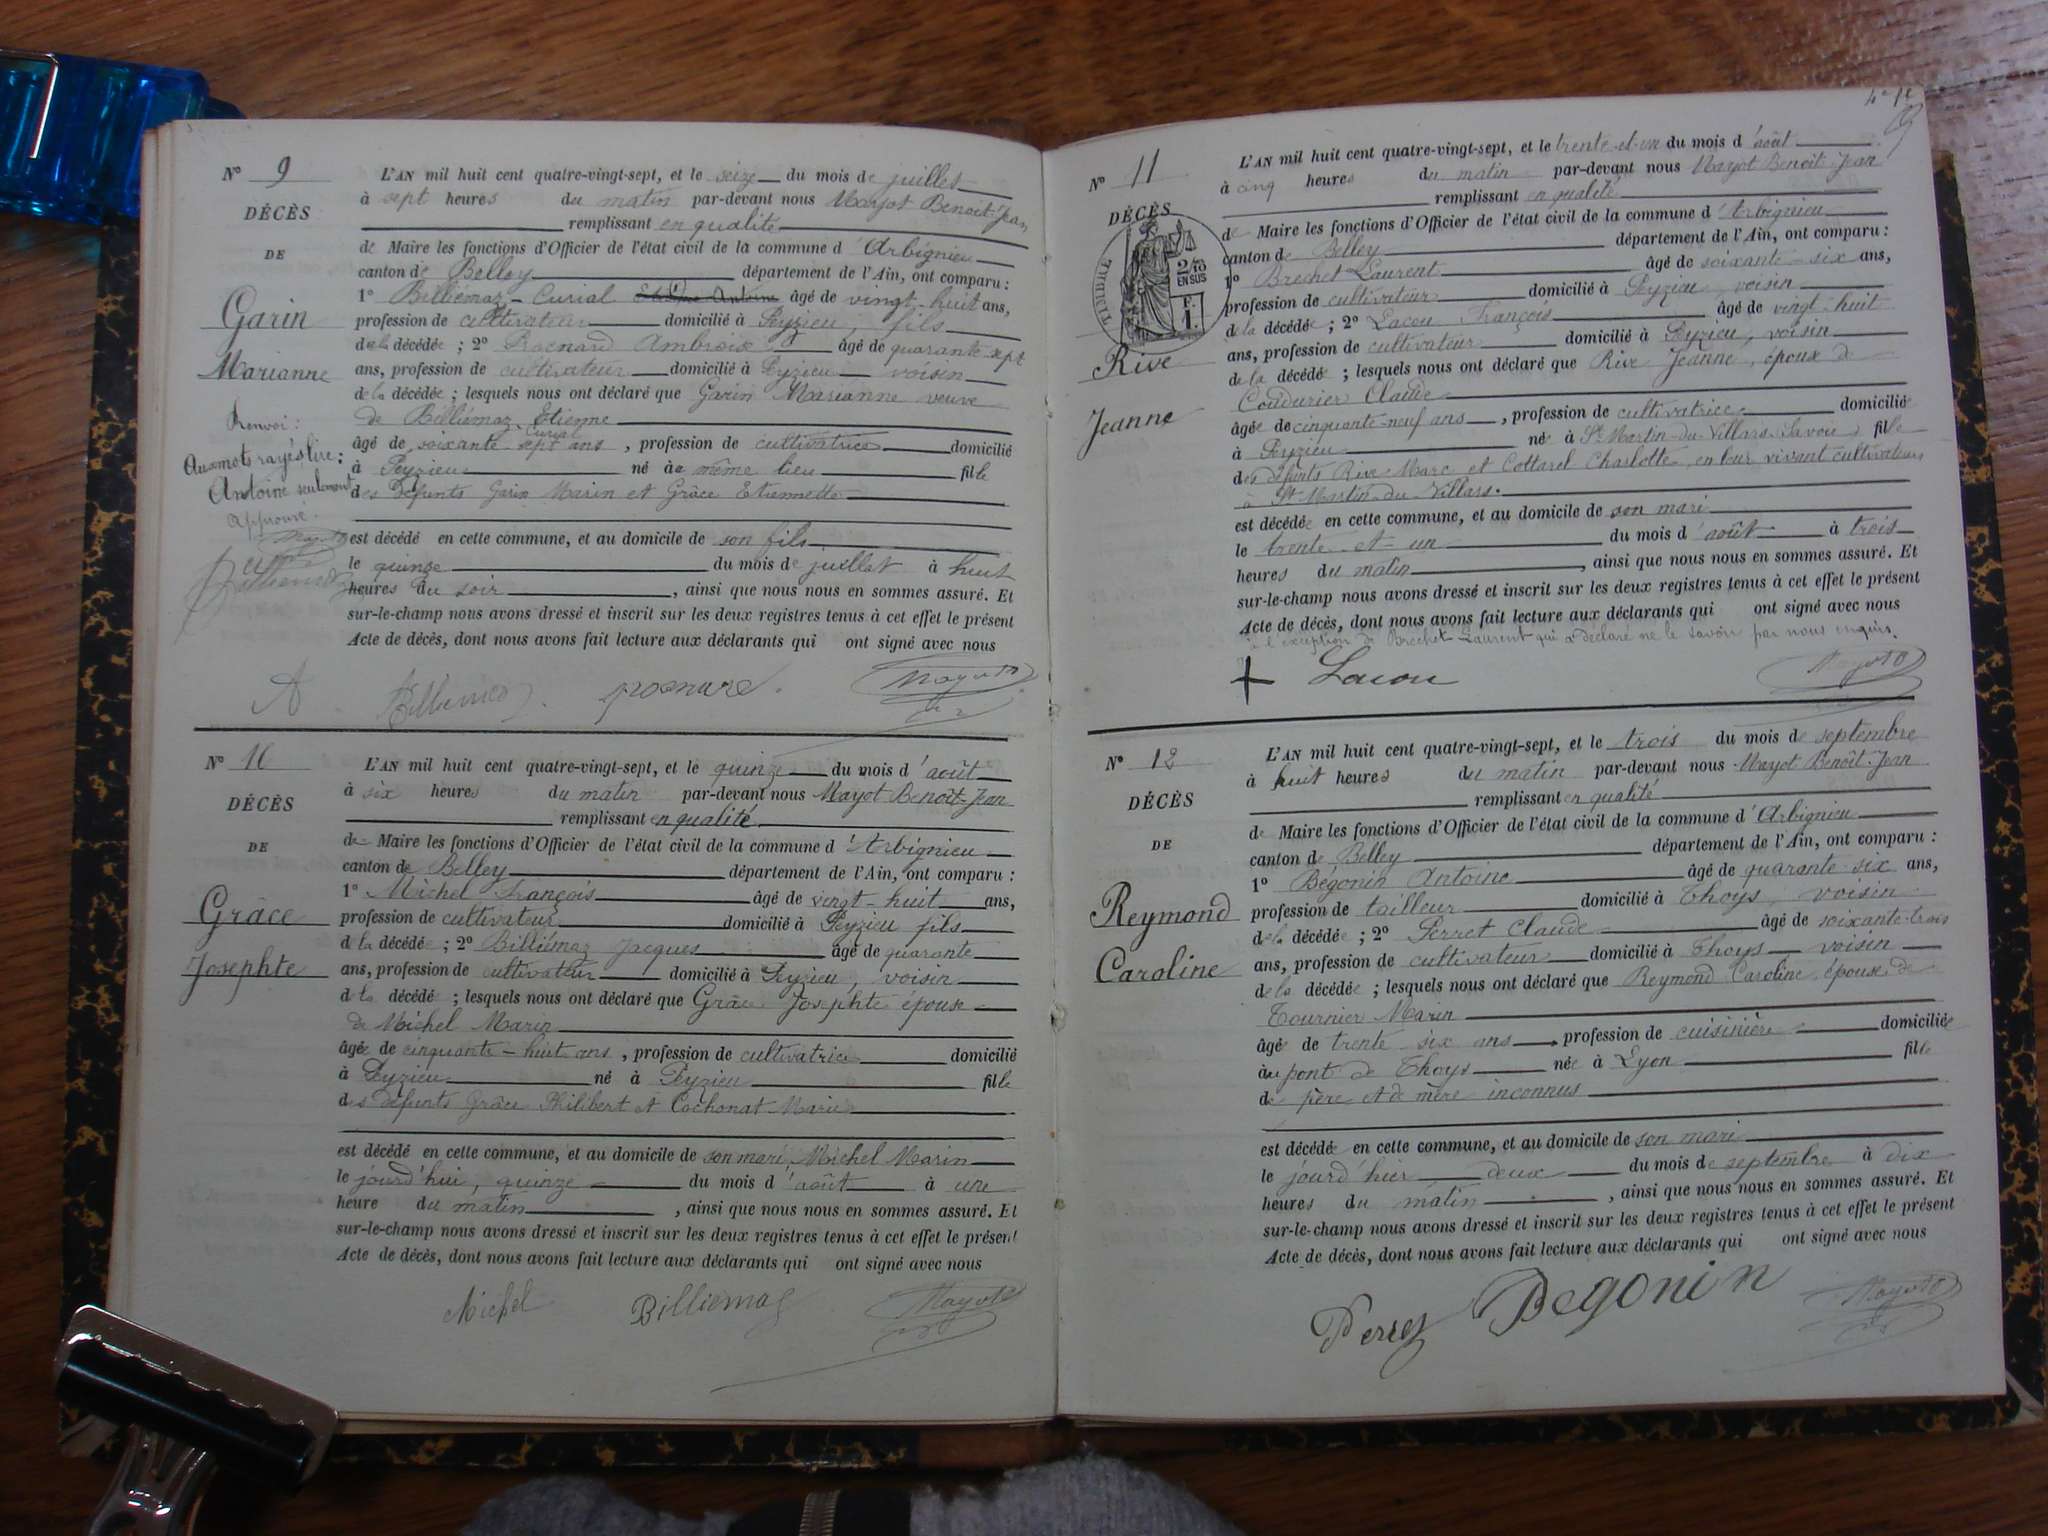 N° 9
DÉCÈS
DE
Garin
Marianne
Renvoi :
Aux mots rayés lire :
Antoine seulement
approuvé.
L'AN mil huit cent quatre-vingt-sept, et le seize du mois de juillet
à sept heures du matin par-devant nous Mayot Benoit-Jean
remplissant en qualité
de Maire les fonctions d'Officier de l'état civil de la commune d'Arbignieu
canton de Belley département de l'Ain, ont comparu :
1° Billiémaz-Curial Etienne Antoine âgé de vingt-huit ans,
profession de cultivateur domicilié à Peyzieu, fils
de la décédée ; 2° Pocnard Ambroix âgé de quarante sept
ans, profession de cultivateur domicilié à Peyzieu voisin
de la décédée ; lesquels nous ont déclaré que Garin Marianne veuve
de Billiémaz Etienne
Curial
âgé de soixante-sept ans, profession de cultivatrice domicilié
à Peyzieu né àu même lieu fille
des défunts Garin Marin et Grâce Etiennette
est décédé en cette commune, et au domicile de son fils
le quinze du mois de juillet à huit
heures du soir, ainsi que nous nous en sommes assuré. Et
sur-le-champ nous avons dressé et inscrit sur les deux registres tenus à cet effet le présent
Acte de décès, dont nous avons fait lecture aux déclarants qui ont signé avec nous
A Billiemaz pocnard Mayot B
N° 10
DÉCÈS
DE
Grâce
Josephte
L'AN mil huit cent quatre-vingt-sept, et le quinze du mois d'août
à six heures du matin par-devant nous Mayot Benoît-Jean
remplissant en qualité
de Maire les fonctions d'Officier de l'état civil de la commune d'Arbignieu
canton de Belley département de l'Ain, ont comparu :
1° Michel François âgé de vingt-huit ans,
profession de cultivateur domicilié à Peyzieu fils
de la décédée ; 2° Billiémaz Jacques âgé de quarante
ans, profession de cultivateur domicilié à Peyzieu, voisin
de la décédé ; lesquels nous ont déclaré que Grâce Josephte épouse
de Michel Marin
âgée de cinquante-huit ans, profession de cultivatrice domicilié
à Peyzieu né à Peyzieu fille
des défunts Grâce Philibert et Cochonat Marie
est décédé en cette commune, et au domicile de son mari, Michel Marin
le jourd'hui, quinze du mois d'août à une
heure du matin, ainsi que nous nous en sommes assuré. Et
sur-le-champ nous avons dressé et inscrit sur les deux registres tenus à cet effet le présent
Acte de décès, dont nous avons fait lecture aux déclarants qui ont signé avec nous
Michel Billiemaz Mayot B
N° 11
DÉCÈS
TIMBRE
2/10
EN SUS
F.
1.
Rive
Jeanne
L'AN mil huit cent quatre-vingt-sept, et le trente-et-un du mois d'août
à cinq heures du matin par-devant nous Mayot Benoit-Jean
remplissant en qualité
de Maire les fonctions d'Officier de l'état civil de la commune d'Arbignieu
canton de Belley département de l'Ain, ont comparu :
1° Brechet Laurent âgé de soixante-six ans,
profession de cultivateur domicilié à Peyzieu, voisin
de la décédée ; 2° Lacou François âgé de vingt-huit
ans, profession de cultivateur domicilié à Peyzieu, voisin
de la décédée ; lesquels nous ont déclaré que Rive Jeanne, époux de
Coudurier Claude
âgée de cinquante-neuf ans, profession de cultivatrice domicilié
à Peyzieu né à St Martin-du-Villars (Savoie) fille
des défunts Rive Marc et Cottarel Charlotte, en leur vivant cultivateurs
à St-Martin-du-Villars.
est décédée en cette commune, et au domicile de son mari
le trente-et-un du mois d'août à trois
heures du matin, ainsi que nous nous en sommes assuré. Et
sur-le-champ nous avons dressé et inscrit sur les deux registres tenus à cet effet le présent
Acte de décès, dont nous avons fait lecture aux déclarants qui ont signé avec nous
à l'exception de Brechet Laurent qui a déclaré ne le savoir par nous enquis.
+ Lacou Mayot B
N° 12
DÉCÈS
DE
Reymond
Caroline
L'AN mil huit cent quatre-vingt-sept, et le trois du mois de septembre
à huit heures du matin par-devant nous Mayot Benoît-Jean
remplissant en qualité
de Maire les fonctions d'Officier de l'état civil de la commune d'Arbignieu
canton de Belley département de l'Ain, ont comparu :
1° Bégonin Antoine âgé de quarante-six ans,
profession de tailleur domicilié à Thoys, voisin
de la décédée ; 2° Perret Claude âgé de soixante-trois
ans, profession de cultivateur domicilié à Thoys voisin
de la décédée ; lesquels nous ont déclaré que Reymond Caroline, épouse de
Tournier Marin
âgée de trente six ans, profession de cuisinière domiciliée
àu pont de Thoys née à Lyon fille
de père et de mère inconnus
est décédé en cette commune, et au domicile de son mari
le jourd'hier deux du mois de septembre à dix
heures du matin, ainsi que nous nous en sommes assuré. Et
sur-le-champ nous avons dressé et inscrit sur les deux registres tenus à cet effet le présent
Acte de décès, dont nous avons fait lecture aux déclarants qui ont signé avec nous
Perret Begonin Mayot B